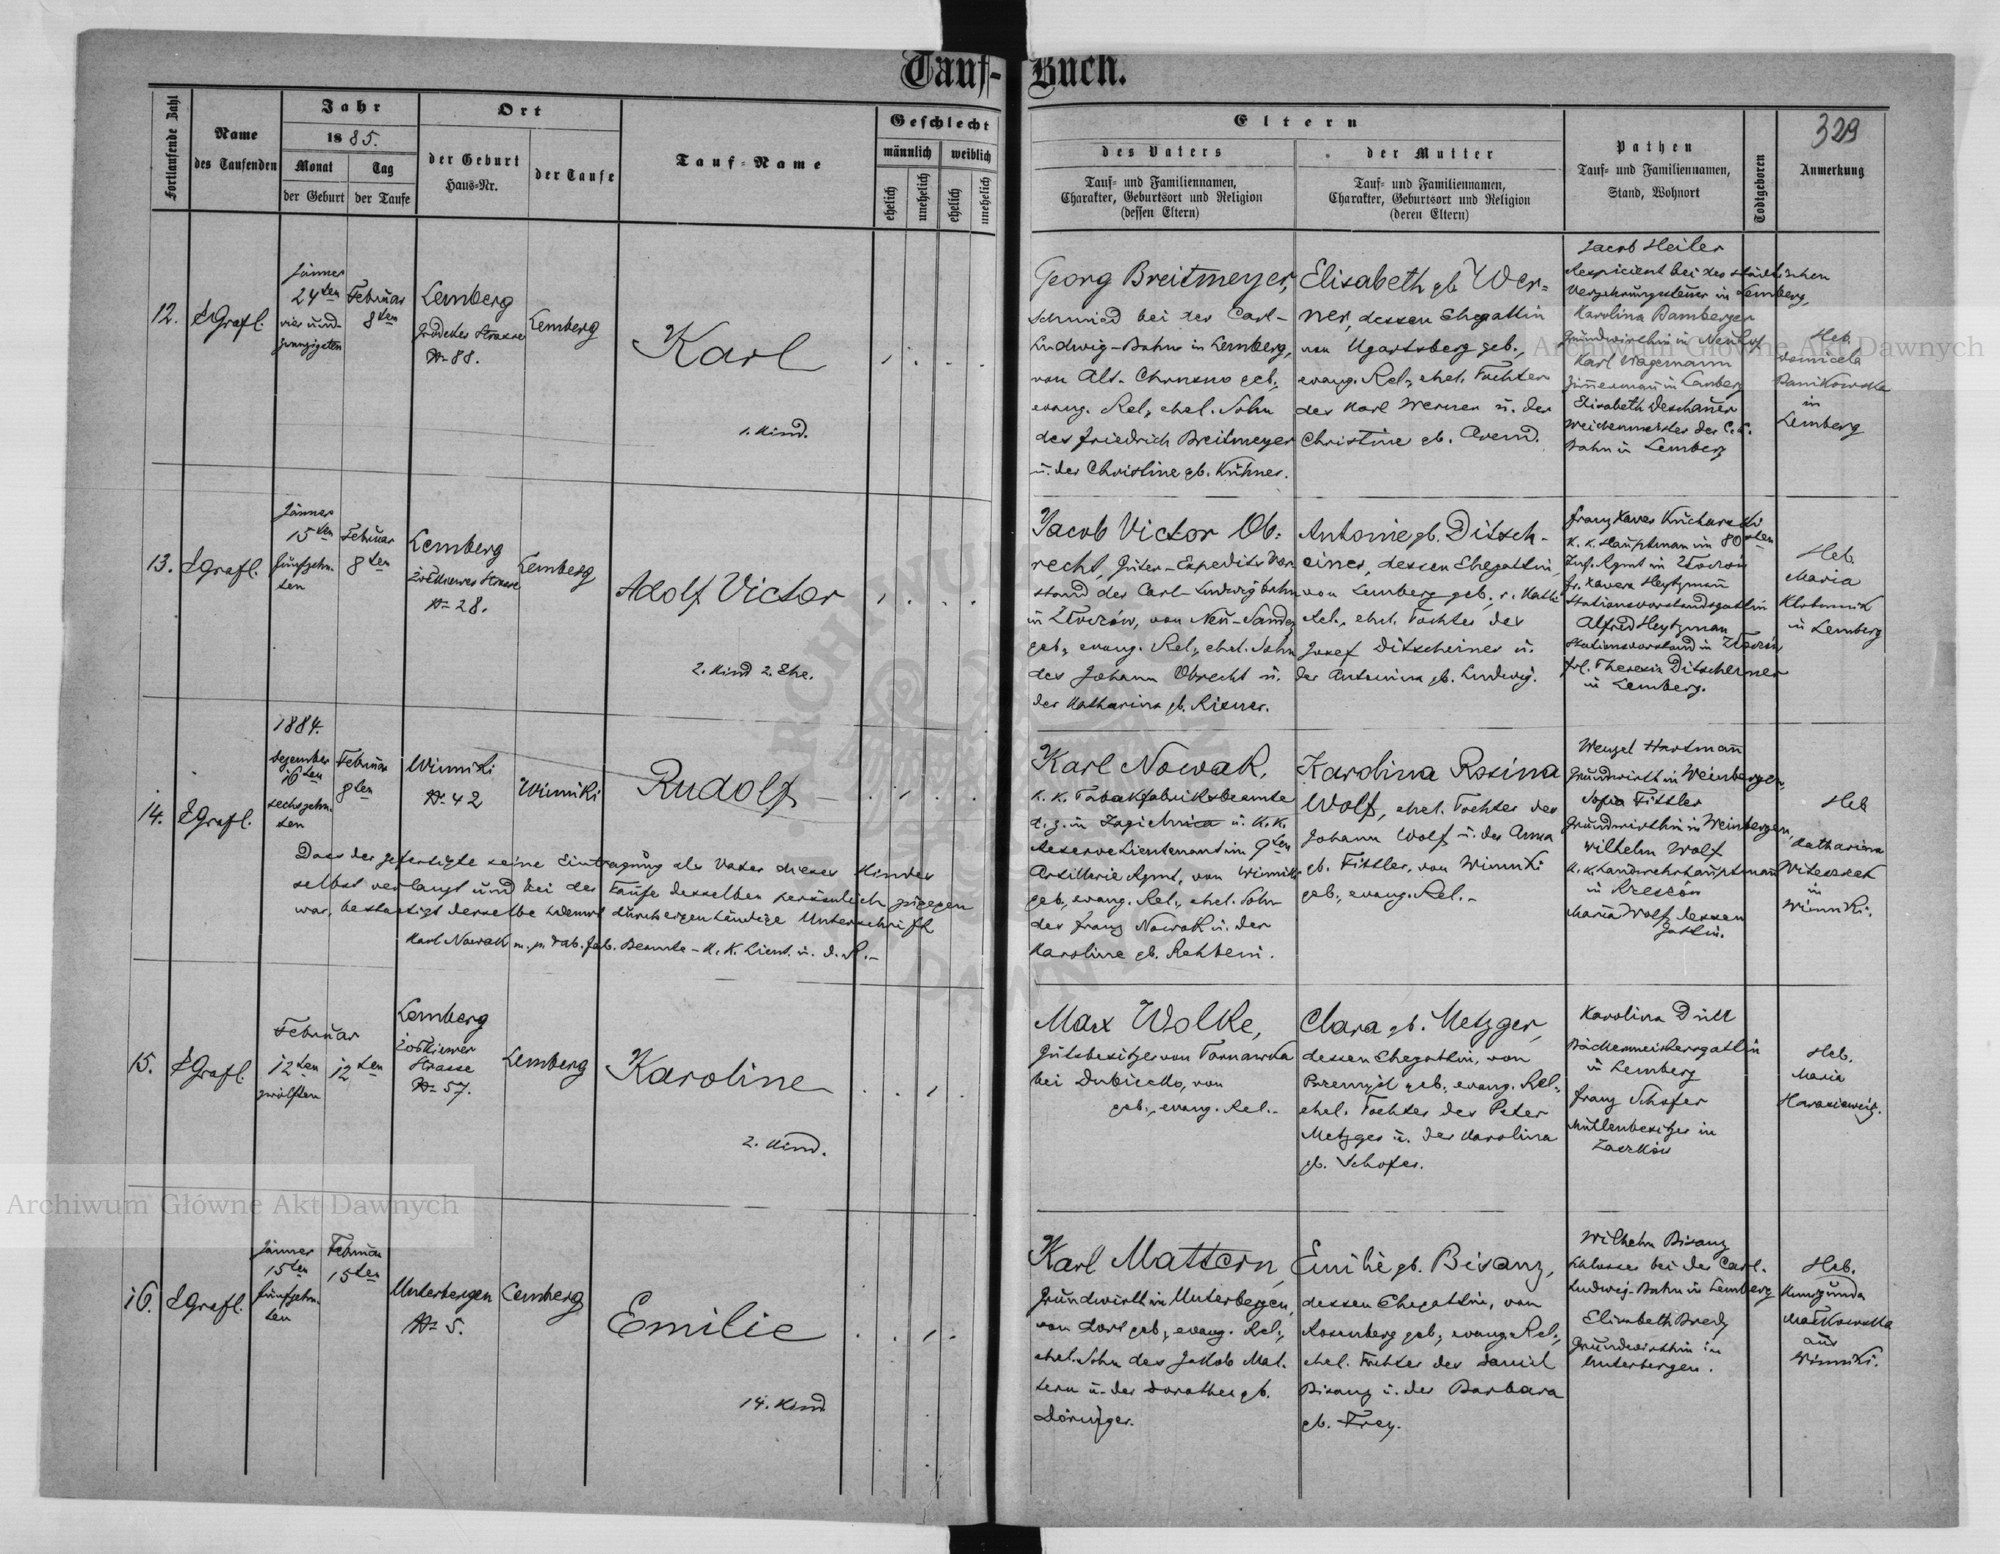 Tauf-Buch.
329
Fortlaufende Zahl
Name
des Taufenden
Jahr
1885.
Monat
der Geburt
Tag
der Taufe
Ort
der Geburt
Haus-Nr.
der Taufe
Tauf-Name
Geschlecht
männlich
weiblich
ehelich
unehelich
ehelich
unehelich
Eltern
des Vaters
Tauf- und Familiennamen,
Charakter, Geburtsort und Religion
(dessen Eltern)
der Mutter
Tauf- und Familiennamen,
Charakter, Geburtsort und Religion
(deren Eltern)
Pathen
Tauf- und Familiennamen,
Stand, Wohnort
Todtgeboren
Anmerkung
12.
Grafl.
Jänner
24ten
vier und-
zwanzigsten
Februar
8ten
Lemberg
Grodecker Strasse
Nr 88.
Lemberg
Karl
1. Kind.
Georg Breitmeyer,
Schmied bei der Carl-
Ludwig-Bahn in Lemberg,
von Alt- geb.,
evang. Rel., ehel. Sohn
des Friedrich Breitmeyer
u. der Christine gb. Kühner.
Elisabeth gb Wer-
ner, dessen Ehegattin
von Ugartsberg geb.,
evang. Rel., ehel. Tochter
des Karl Werner u. der
Christine gb. Arend.
Jacob Heiler
Respicient bei der städtischen
Verzehrungssteuer in Lemberg,
Karolina Bamberger
Grundwirthin in Neuhof
Karl Wagemann
Zimmermann in Lemberg
Elisabeth Deschauer
Weichenmeister der C.L.
Bahn in Lemberg
Heb.
in
Lemberg
13.
Grafl.
Jänner
15ten
fünfzehn-
ten
Februar
8ten
Lemberg
Zolkiewer Strasse
Nr 28.
Lemberg
Adolf Victor
2. Kind 2. Ehe.
Jacob Victor Ob-
recht, Güter-Expedits Vor
stand der Carl-Ludwigbahn
in Zloczów, von Neu-Sandez
geb., evang. Rel., ehel. Sohn
des Johann Obrecht u.
der Katharina gb. Risner.
Antonie gb. Ditsch-
einer, dessen Ehegattin,
von Lemberg geb., r. kath.
Rel., ehel. Tochter des
Josef Ditscheiner u.
der Antonina gb. Ludwig.
Franz Xaver Kucharski
k. k. Hauptman im 80ten
Inf. Rgmt in Zloczów
Fr. Xavera Heytzmann
Stationsvorstandsgattin
Alfred Heytzman
Stationsvorstand in Zloczów
Frl. Theresia Ditscheiner
in Lemberg.
Heb.
Maria
in Lemberg
14.
Grafl.
1884.
Dezember
16ten
sechszehn-
ten
Februar
8ten
Winniki
Nr 42
Winniki
Rudolf
Dass der gefertigte seine Eintragung als Vater dieses Kindes
selbst verlangt und bei der Taufe desselben persönlich zugegen
war, bestaetigt derselbe hiemit durch eigenhändige Unterschrift
Karl Nowak m. p. Tab. fab. Beamte - K. K. Lieut. i. d. R.-
Karl Nowak,
k. k. Tabakfabriksbeamte
d. z. in Zagielnica u. k.k.
Reserve Lieutenant im 9ten
Artillerie Rgmt, von Winniki
geb., evang. Rel., ehel. Sohn
des Franz Nowak u. der
Karoline gb. Rehbein.
Karolina Rosina
Wolf, ehel. Tochter des
Johann Wolf u. der Anna
gb. Fittler, von Winniki
geb., evang. Rel.-
Wenzel Hartman
Grundwirth in Weinbergen,
Sofia Fittler
Grundwirthin in Weinbergen,
Wilhelm Wolf
k. k. Landwehrhauptmann
in Rzeszów
Maria Wolf dessen
Gattin.
Heb
Katharina
in
Winniki.
15.
Grafl.
Februar
12ten
zwölften
12ten
Lemberg
Zolkiewer
Strasse
Nr 57.
Lemberg
Karoline
2. Kind.
Max Wolke,
Gutsbesitzer von Tarnawka
bei Dubiecko, von
geb., evang. Rel.-
Clara gb. Metzger,
dessen Ehegattin, von
Przemysl geb., evang. Rel.,
ehel. Tochter des Peter
Metzger u. der Karolina
gb. Schofer.
Karolina Düll
Bäckermeistersgattin
in Lemberg
Franz Schofer
Mühlenbesitzer in
Heb.
Maria
16.
Grafl.
Jänner
15ten
fünfzehn-
ten
Februar
15ten
Unterbergen
Nr 5.
Lemberg
Emilie
14. Kind
Karl Mattern,
Grundwirth in Unterbergen,
von dort geb., evang. Rel.,
ehel. Sohn des Jakob Mat-
tern u. der Dorothea gb.
Döringer.
Emilie gb. Bisanz,
dessen Ehegattin, von
Rosenberg geb., evang. Rel.,
ehel. Tochter des Daniel
Bisanz u. der Barbara
gb. Frey.
Wilhelm Bisanz
Schlosser bei der Carl-
Ludwig-Bahn in Lemberg
Elisabeth Bredy
Grundwirthin in
Unterbergen.
Heb.
Kunigunda
Matkowska
aus
Winniki.
Archiwum Główne Akt Dawnych
Archiwum Główne Akt Dawnych